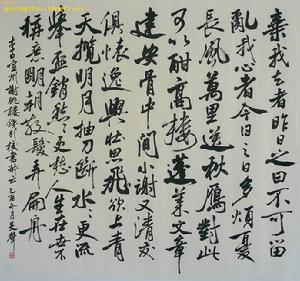 棄我去者昨日之日不可留
亂我心者今日之日多煩憂
長風萬里送秋雁對此
可以酣高樓蓬萊文章
建安骨中間小謝又清發
俱懷逸興壯思飛欲上青
天攬明月抽刀斷水水更流
舉杯銷愁愁更愁人生在世不
稱意明朝散髮弄扁舟
李白宣州謝朓樓餞別校書叔雲乙酉年月